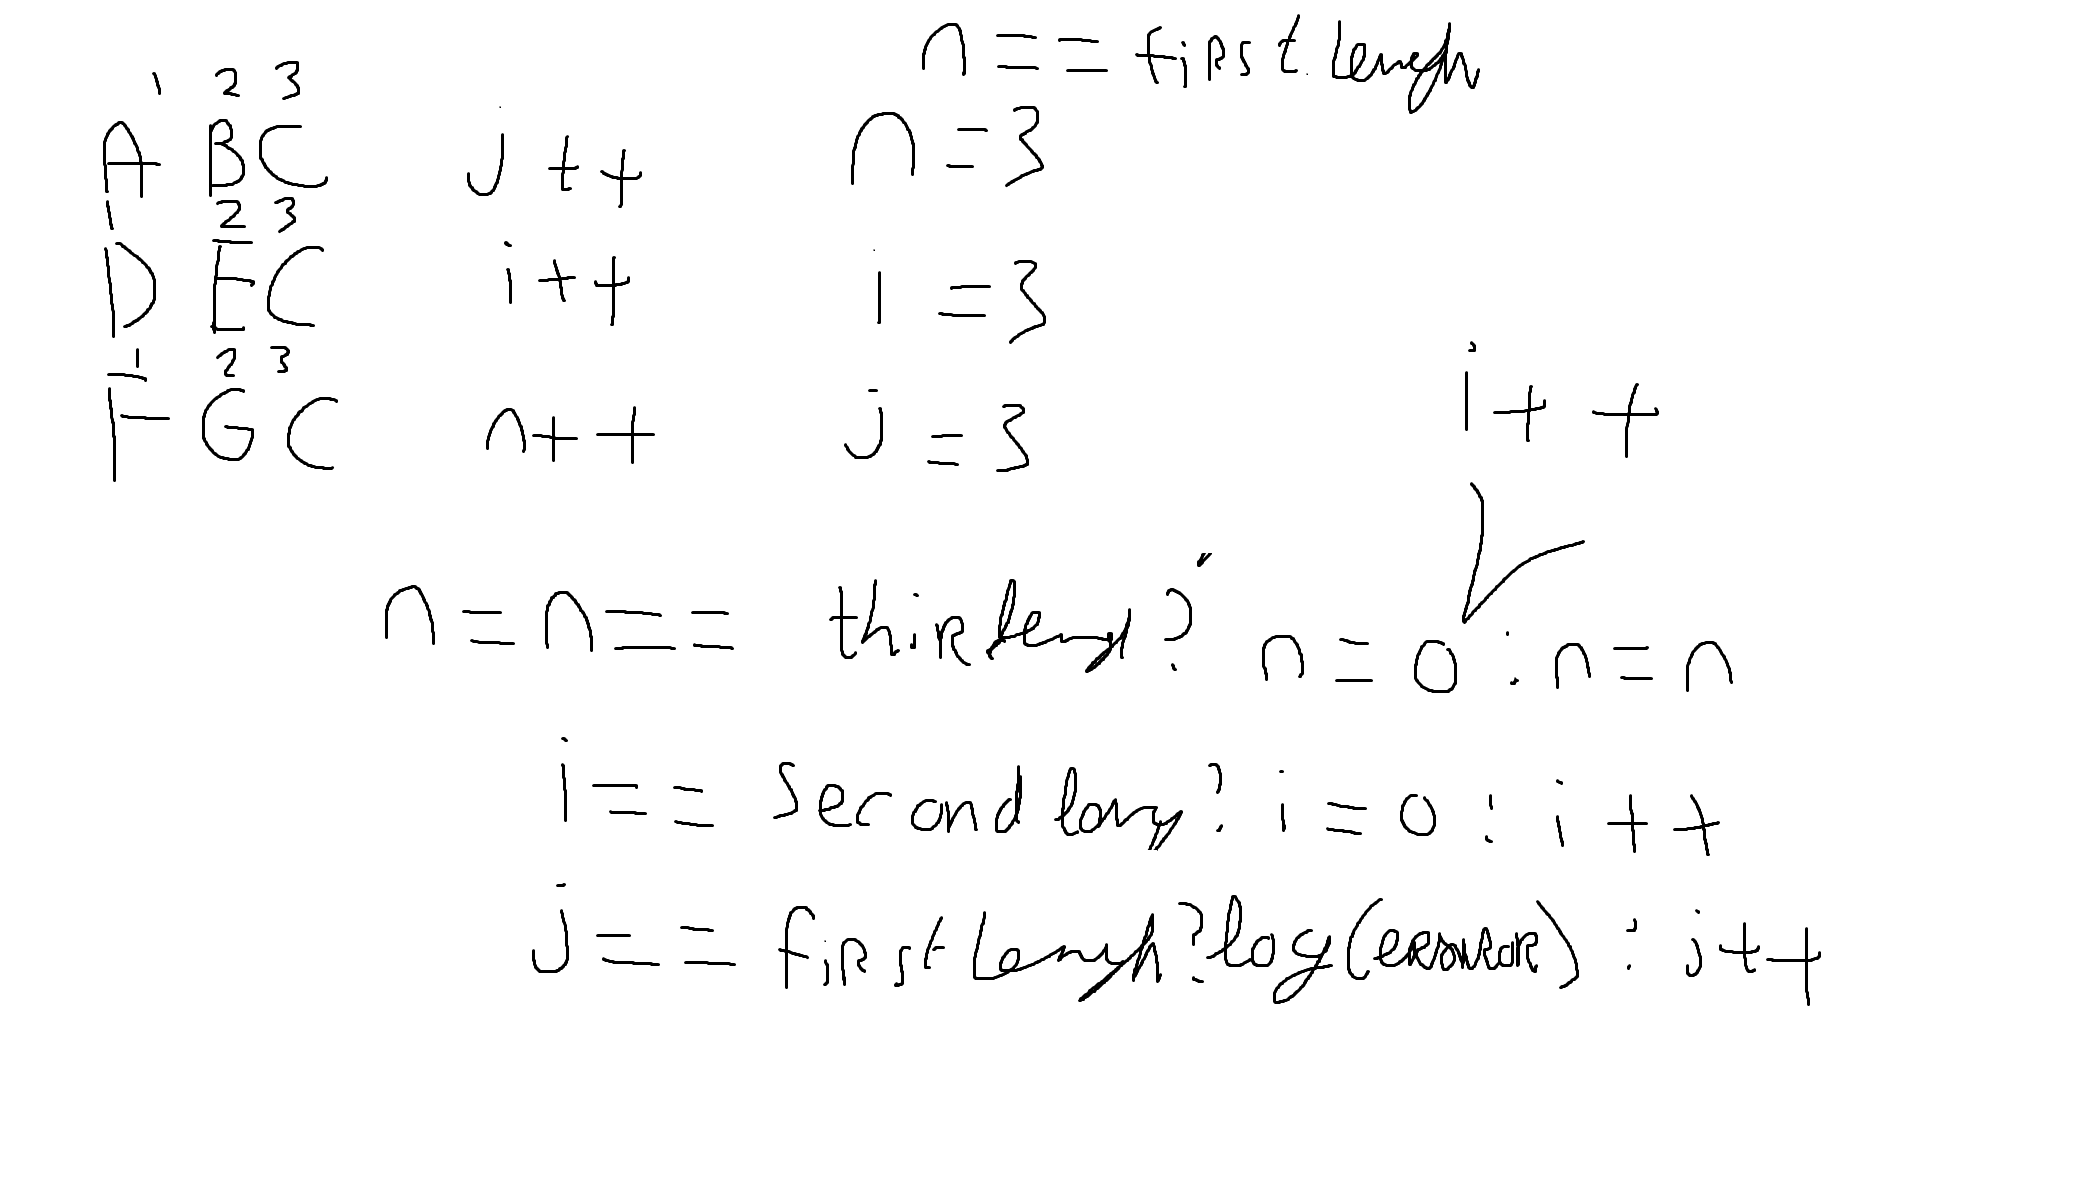 n == first.lengh
1 2 3
A B C j++ n = 3
1 2 3
D E C i++ i = 3
1 2 3
F G C n++ j = 3
i++
n = n == thir lengh? n = 0 : n = n
i == second long? i = 0 : i++
j == first lengh? log(error) : j++